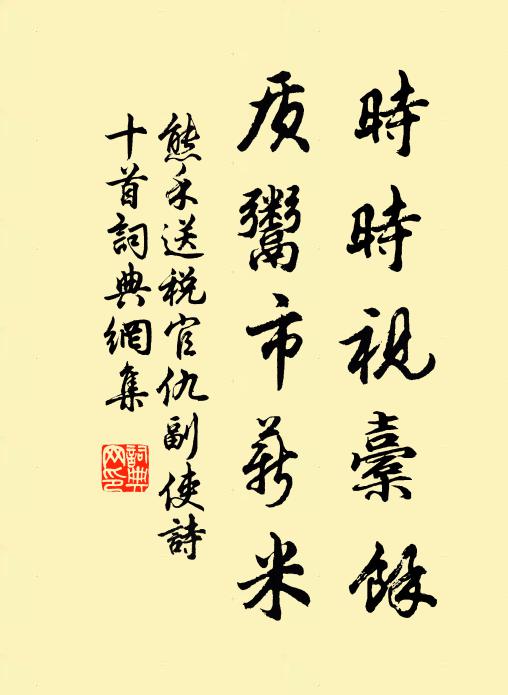 時時視橐餘
质鬻市薪米
熊禾送税官仇副使詩
十首詞典網集
詞典網印